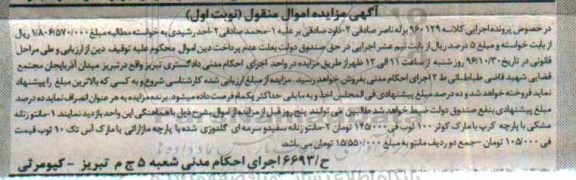 آگهی مزایده اموال منقول (نوبت اول)
در خصوص پرونده اجرایی کلاسه ۹۶۰۱۲۹ برله ناصر صادقی ۲-داود صادقی بر علیه ۱-محمد صادقی ۲-احد رشیدی به خواسته مطالبه مبلغ ۱/۸۰۶/۵۷۰/۰۰۰ ریال
از بابت خواسته و مبلغ ۵ درصد ریال از بابت نیم عشر اجرایی در حق صندوق دولت بعلت عدم پرداخت دین اموال محکوم علیه توقیف دین از ارزیابی و طی مراحل
قانونی در تاریخ ۹۶/۱۰/۳۰ روز شنبه از ساعت ۱۱ الی ۱۲ ظهر از طریق مزایده در واحد اجرای احکام مدنی دادگستری تبریز واقع در تبریز میدان آذربایجان مجتمع
قضایی شهید قاضی طباطبائی ط ۲ اجرای احکام مدنی بفروش خواهد رسید. مزایده از مبلغ ارزیابی شده کارشناسی شروع و به کسی که بالاترین مبلغ را پیشنهاد
نماید فروخته خواهد شد و ده درصد مبلغ پیشنهادی فی المجلس اخذ و به مابقی حداکثر یکماه فرصت داده میشود. برنده مزایده به هر عنوان انصراف نماید ده درصد
مبلغ پیشنهادی بنفع صندوق دولت ضبط خواهد شد طالبین می توانند پنج روز قبل از مزایده از اموال مشروح ذیل با هماهنگی این واحد بازدید نمایند. ۱-مانتو زنانه
مشکی با پارچه کرپ با مارک کوثر ۱۰۰ ثوب فی ۱۴۵/۰۰۰ تومان ۲-مانتو زنانه سفید و سرمه ای گلدوزی شده با پارچه مازاراتی با مارک آس تک ۱۰ ثوب قیمت
فی ۱۰۵/۰۰۰ تومان -جمع دو ردیف مانتو به مبلغ ۱۵/۵۵۰/۰۰۰ تومان می باشد
ح/۶۶۹۳ اجرای احکام مدنی شعبه ۵ ج م تبریز - کیومرثی